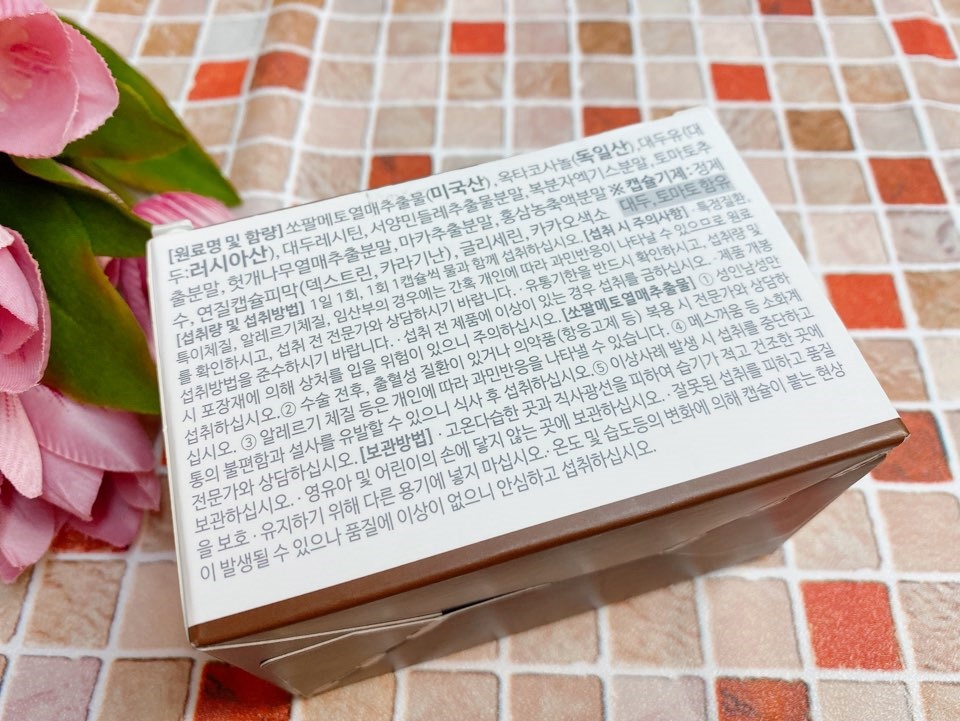 [원료명 및 함량] 쏘팔메토열매추출물(미국산), 옥타코사놀(독일산), 대두유(대
두:러시아산), 대두레시틴, 서양민들레추출물분말, 복분자엑기스분말, 토마토추
출분말, 헛개나무열매추출분말, 마카추출분말, 홍삼농축액분말 ※캡슐기제: 정제
수, 연질캡슐피막(덱스트린, 카라기난), 글리세린, 카카오색소 대두, 토마토 함유
[섭취량 및 섭취방법] 1일 1회, 1회 1캡슐씩 물과 함께 섭취하십시오. [섭취 시 주의사항] · 특정질환,
특이체질, 알레르기체질, 임산부의 경우에는 간혹 개인에 따라 과민반응이 나타날 수 있으므로 원료
를 확인하시고, 섭취 전 전문가와 상담하시기 바랍니다. · 유통기한을 반드시 확인하시고, 섭취량 및
섭취방법을 준수하시기 바랍니다. · 섭취 전 제품에 이상이 있는 경우 섭취를 금하십시오. · 제품 개봉
시 포장재에 의해 상처를 입을 위험이 있으니 주의하십시오. [쏘팔메토열매추출물] ① 성인남성만
섭취하십시오. ② 수술 전후, 출혈성 질환이 있거나 의약품(항응고제 등) 복용 시 전문가와 상담하
십시오. ③ 알레르기 체질 등은 개인에 따라 과민반응을 나타낼 수 있습니다. ④ 메스꺼움 등 소화계
통의 불편함과 설사를 유발할 수 있으니 식사 후 섭취하십시오. ⑤ 이상사례 발생 시 섭취를 중단하고
전문가와 상담하십시오. [보관방법] · 고온다습한 곳과 직사광선을 피하여 습기가 적고 건조한 곳에
보관하십시오. · 영유아 및 어린이의 손에 닿지 않는 곳에 보관하십시오. · 잘못된 섭취를 피하고 품질
을 보호·유지하기 위해 다른 용기에 넣지 마십시오. · 온도 및 습도등의 변화에 의해 캡슐이 붙는 현상
이 발생될 수 있으나 품질에 이상이 없으니 안심하고 섭취하십시오.